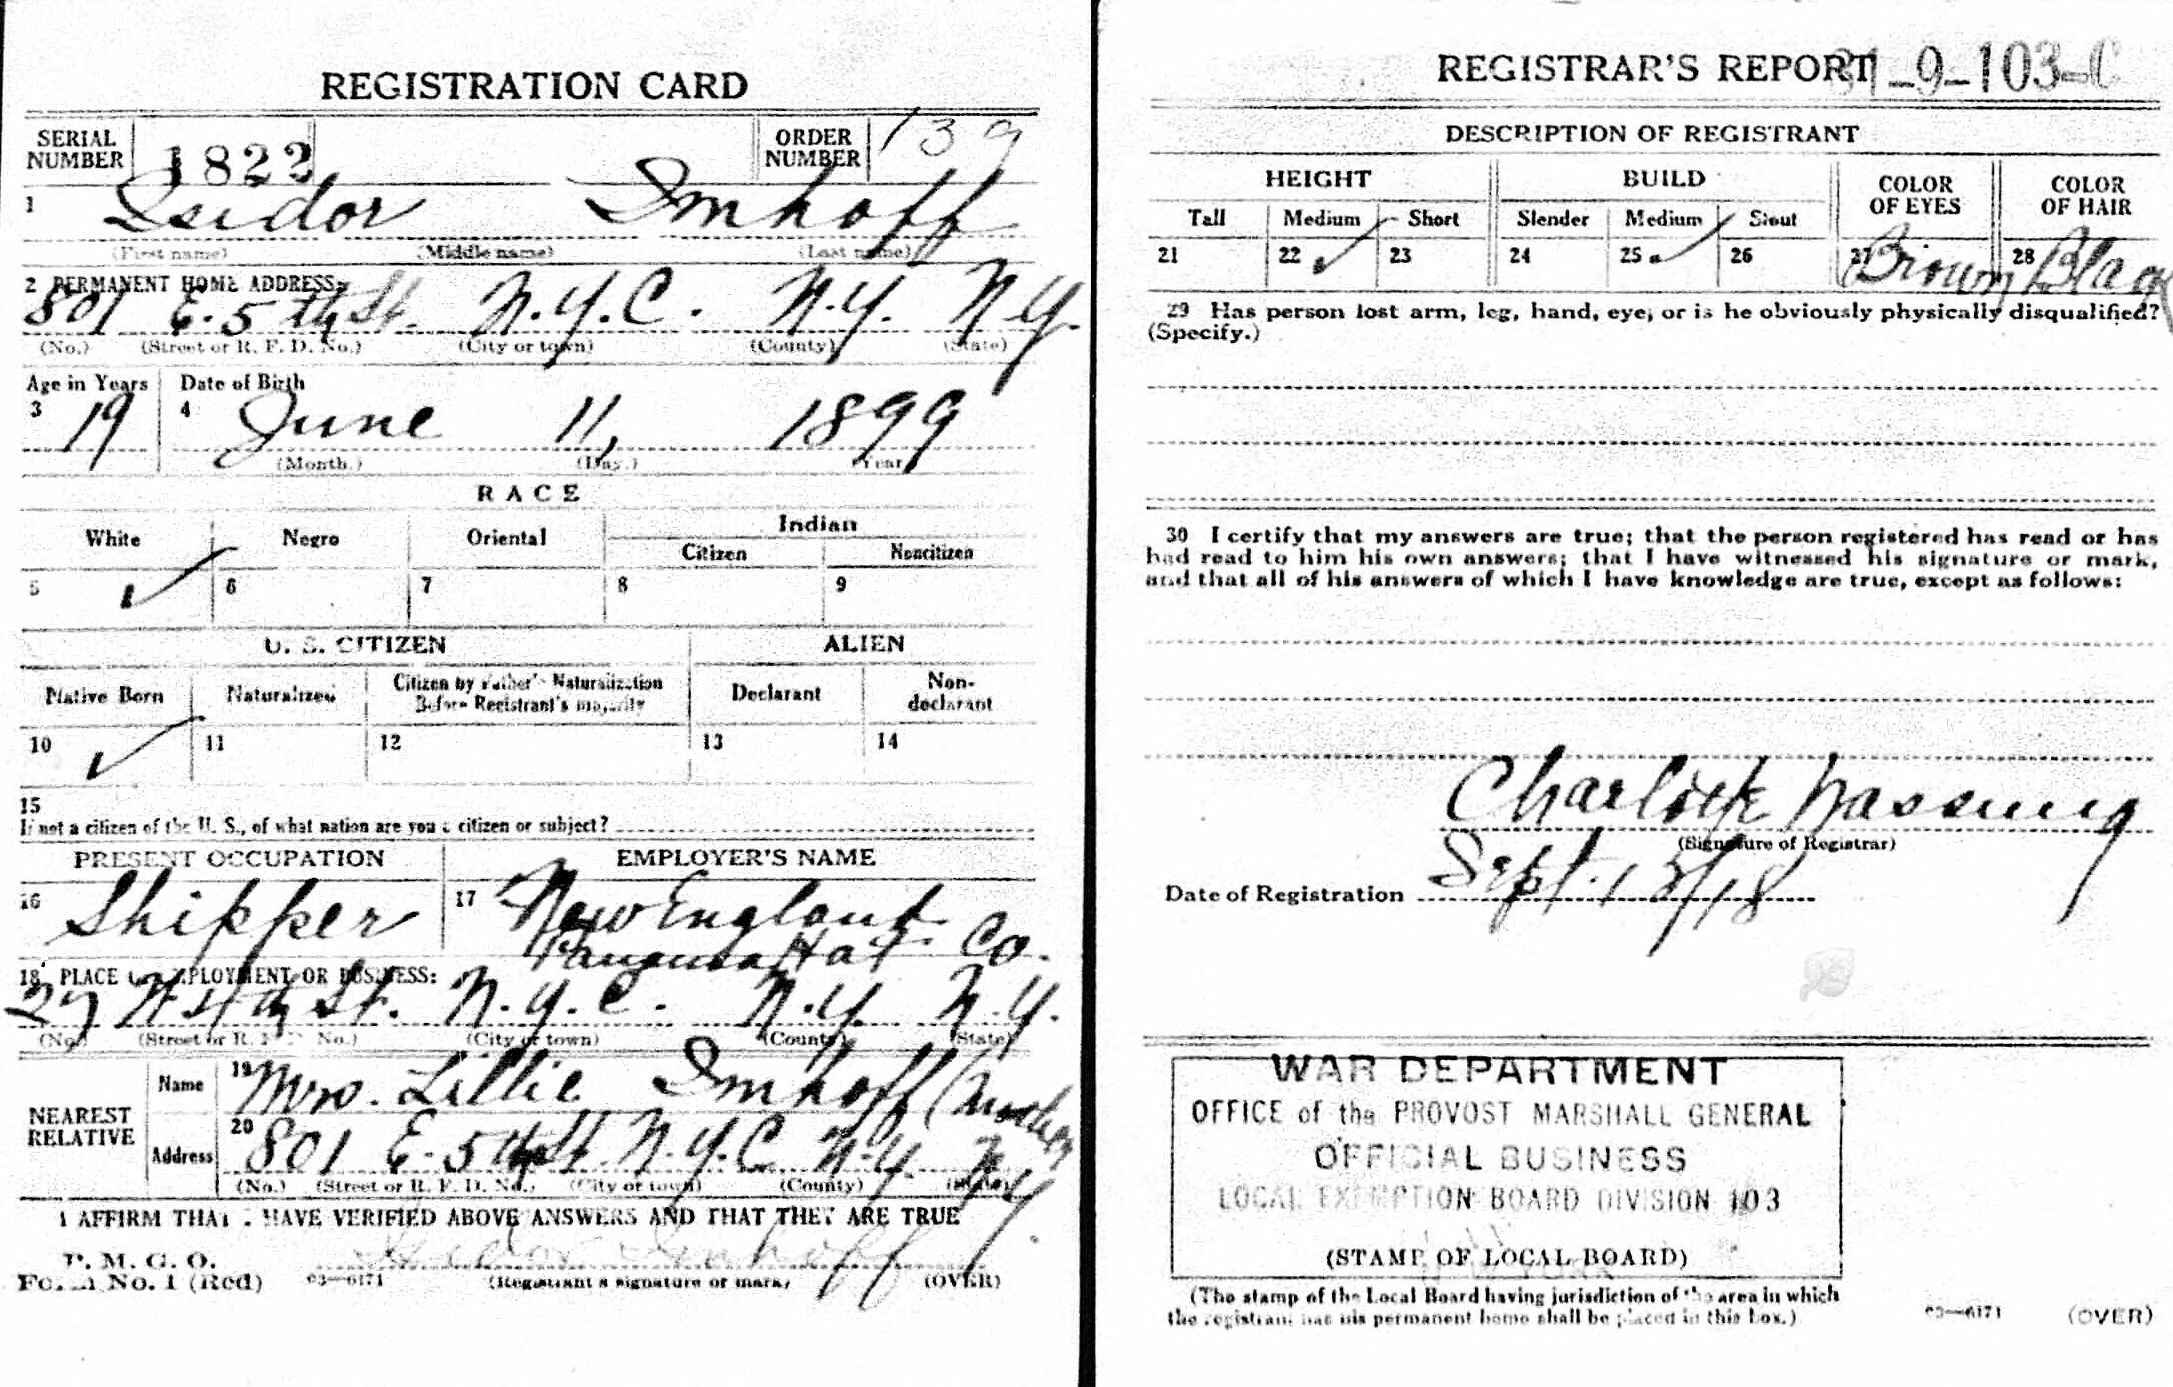 REGISTRATION CARD
SERIAL NUMBER 1822 ORDER NUMBER 139
1 Isidor Imhoff
(First name) (Middle name) (Last name)
2 PERMANENT HOME ADDRESS:
801 E. 5th St. N.Y.C. N.Y. N.Y.
(No.) (Street or R. F. D. No.) (City or town) (County) (State)
Age in Years Date of Birth
3 19 4 June 11, 1899
(Month.) (Day.) (Year)
RACE
White Negro Oriental Indian
Citizen Noncitizen
5 ✓ 6 7 8 9
U. S. CITIZEN ALIEN
Native Born Naturalized Citizen by Father's Naturalization Before Registrant's majority Declarant Non-declarant
10 ✓ 11 12 13 14
15
If not a citizen of the U. S., of what nation are you a citizen or subject?
PRESENT OCCUPATION EMPLOYER'S NAME
16 Shipper 17 New England
Panama Hat Co.
18 PLACE OF EMPLOYMENT OR BUSINESS:
27 W 4th St. N.Y.C. N.Y. N.Y.
(No.) (Street or R. F. D. No.) (City or town) (County) (State)
NEAREST RELATIVE
Name 19 Mrs. Lillie Imhoff (Mother
Address 20 801 E. 5th St. N.Y.C N.Y. N.Y
(No.) (Street or R. F. D. No.) (City or town) (County) (State)
I AFFIRM THAT I HAVE VERIFIED ABOVE ANSWERS AND THAT THEY ARE TRUE
P. M. G. O.
Form No. 1 (Red) 03—6171 Isidor Imhoff
(Registrant's signature or mark) (OVER)
REGISTRAR'S REPORT 31-9-103-C
DESCRIPTION OF REGISTRANT
HEIGHT BUILD COLOR OF EYES COLOR OF HAIR
Tall Medium Short Slender Medium Stout
21 22 ✓ 23 24 25 ✓ 26 27 Brown 28 Black
29 Has person lost arm, leg, hand, eye, or is he obviously physically disqualified?
(Specify.)
30 I certify that my answers are true; that the person registered has read or has
had read to him his own answers; that I have witnessed his signature or mark,
and that all of his answers of which I have knowledge are true, except as follows:
Charlotte
(Signature of Registrar)
Date of Registration Sept. 12/18
WAR DEPARTMENT
OFFICE of the PROVOST MARSHALL GENERAL
OFFICIAL BUSINESS
LOCAL EXEMPTION BOARD DIVISION 103
(STAMP OF LOCAL BOARD)
(The stamp of the Local Board having jurisdiction of the area in which
the registrant has his permanent home shall be placed in this box.)
03—6171 (OVER)